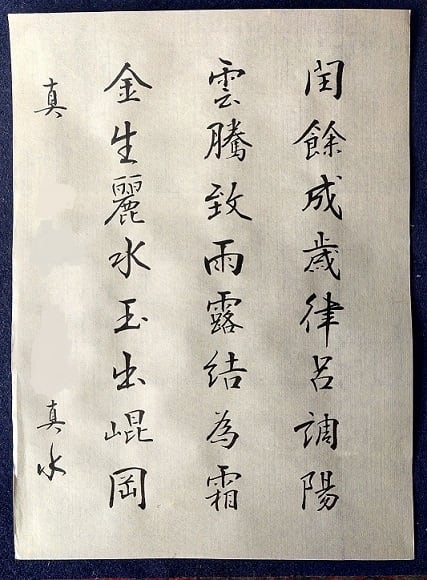 閏餘成歲律呂調陽
雲騰致雨露結為霜
金生麗水玉出崐岡
真
真水